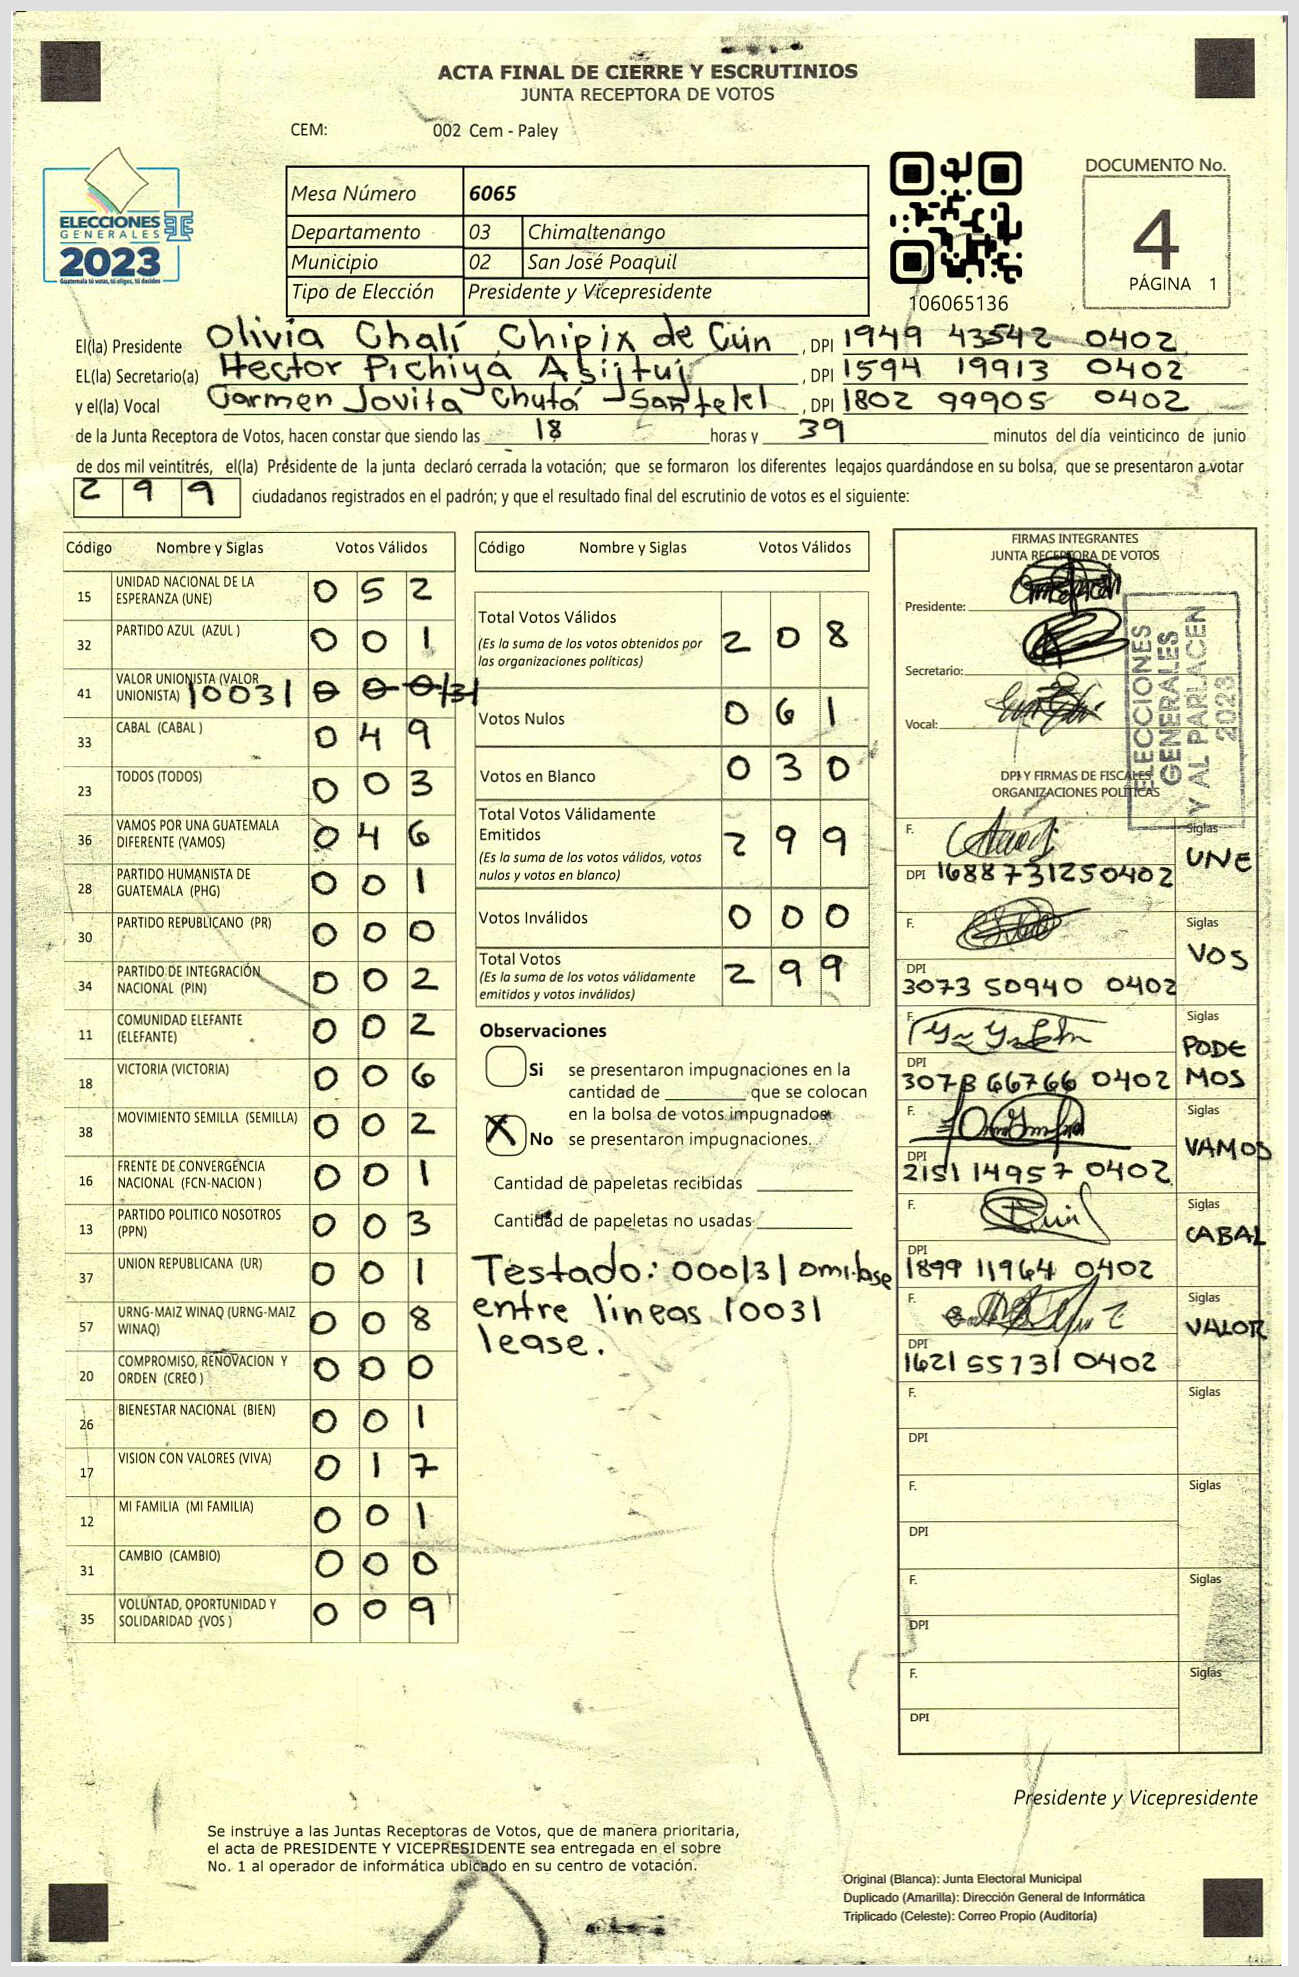 ACTA FINAL DE CIERRE Y ESCRUTINIOS
JUNTA RECEPTORA DE VOTOS
CEM: 002 Cem - Paley
ELECCIONES
GENERALES
2023
Guatemala tú votas, tú eliges, tú decides
Mesa Número 6065
Departamento 03 Chimaltenango
Municipio 02 San José Poaquil
Tipo de Elección Presidente y Vicepresidente
106065136
DOCUMENTO No.
4
PÁGINA 1
El(la) Presidente Olivia Chalí Chipix de Cún , DPI 1949 43542 0402
EL(la) Secretario(a) Hector Pichiyá Asijtuj , DPI 1594 19913 0402
y el(la) Vocal Carmen Jovita Chutá Santelel , DPI 1802 99905 0402
de la Junta Receptora de Votos, hacen constar que siendo las 18 horas y 39 minutos del día veinticinco de junio
de dos mil veintitrés, el(la) Presidente de la junta declaró cerrada la votación; que se formaron los diferentes legajos guardándose en su bolsa, que se presentaron a votar
299 ciudadanos registrados en el padrón; y que el resultado final del escrutinio de votos es el siguiente:
Código Nombre y Siglas Votos Válidos
15 UNIDAD NACIONAL DE LA ESPERANZA (UNE) 0 5 2
32 PARTIDO AZUL (AZUL ) 0 0 1
41 VALOR UNIONISTA (VALOR UNIONISTA) |0031 0 0 0/31
33 CABAL (CABAL ) 0 4 9
23 TODOS (TODOS) 0 0 3
36 VAMOS POR UNA GUATEMALA DIFERENTE (VAMOS) 0 4 6
28 PARTIDO HUMANISTA DE GUATEMALA (PHG) 0 0 1
30 PARTIDO REPUBLICANO (PR) 0 0 0
34 PARTIDO DE INTEGRACIÓN NACIONAL (PIN) 0 0 2
11 COMUNIDAD ELEFANTE (ELEFANTE) 0 0 2
18 VICTORIA (VICTORIA) 0 0 6
38 MOVIMIENTO SEMILLA (SEMILLA) 0 0 2
16 FRENTE DE CONVERGENCIA NACIONAL (FCN-NACION ) 0 0 1
13 PARTIDO POLITICO NOSOTROS (PPN) 0 0 3
37 UNION REPUBLICANA (UR) 0 0 1
57 URNG-MAIZ WINAQ (URNG-MAIZ WINAQ) 0 0 8
20 COMPROMISO, RENOVACION Y ORDEN (CREO ) 0 0 0
26 BIENESTAR NACIONAL (BIEN) 0 0 1
17 VISION CON VALORES (VIVA) 0 1 7
12 MI FAMILIA (MI FAMILIA) 0 0 1
31 CAMBIO (CAMBIO) 0 0 0
35 VOLUNTAD, OPORTUNIDAD Y SOLIDARIDAD (VOS ) 0 0 9
Código Nombre y Siglas Votos Válidos
Total Votos Válidos 2 0 8
(Es la suma de los votos obtenidos por
las organizaciones políticas)
Votos Nulos 0 6 1
Votos en Blanco 0 3 0
Total Votos Válidamente
Emitidos 2 9 9
(Es la suma de los votos válidos, votos
nulos y votos en blanco)
Votos Inválidos 0 0 0
Total Votos 2 9 9
(Es la suma de los votos válidamente
emitidos y votos inválidos)
Observaciones
Si se presentaron impugnaciones en la
cantidad de ________ que se colocan
en la bolsa de votos impugnados.
X No se presentaron impugnaciones.
Cantidad de papeletas recibidas
Cantidad de papeletas no usadas
Testado: 000/31 omitase
entre lineas |0031
lease.
FIRMAS INTEGRANTES
JUNTA RECEPTORA DE VOTOS
Presidente:
Secretario:
Vocal:
ELECCIONES
GENERALES
Y AL PARLACEN
2023
DPI Y FIRMAS DE FISCALES
ORGANIZACIONES POLÍTICAS
F. Siglas
DPI 1688731250402 UNE
F. Siglas
DPI 3073 50940 0402 VOS
F. Siglas
DPI 3078 66766 0402 PODEMOS
F. Siglas
DPI 2151 14957 0402 VAMOS
F. Siglas
DPI 1899 11964 0402 CABAL
F. Siglas
DPI 1621 55731 0402 VALOR
F. Siglas
DPI
F. Siglas
DPI
F. Siglas
DPI
F. Siglas
DPI
Presidente y Vicepresidente
Se instruye a las Juntas Receptoras de Votos, que de manera prioritaria,
el acta de PRESIDENTE Y VICEPRESIDENTE sea entregada en el sobre
No. 1 al operador de informática ubicado en su centro de votación.
Original (Blanca): Junta Electoral Municipal
Duplicado (Amarilla): Dirección General de Informática
Triplicado (Celeste): Correo Propio (Auditoría)